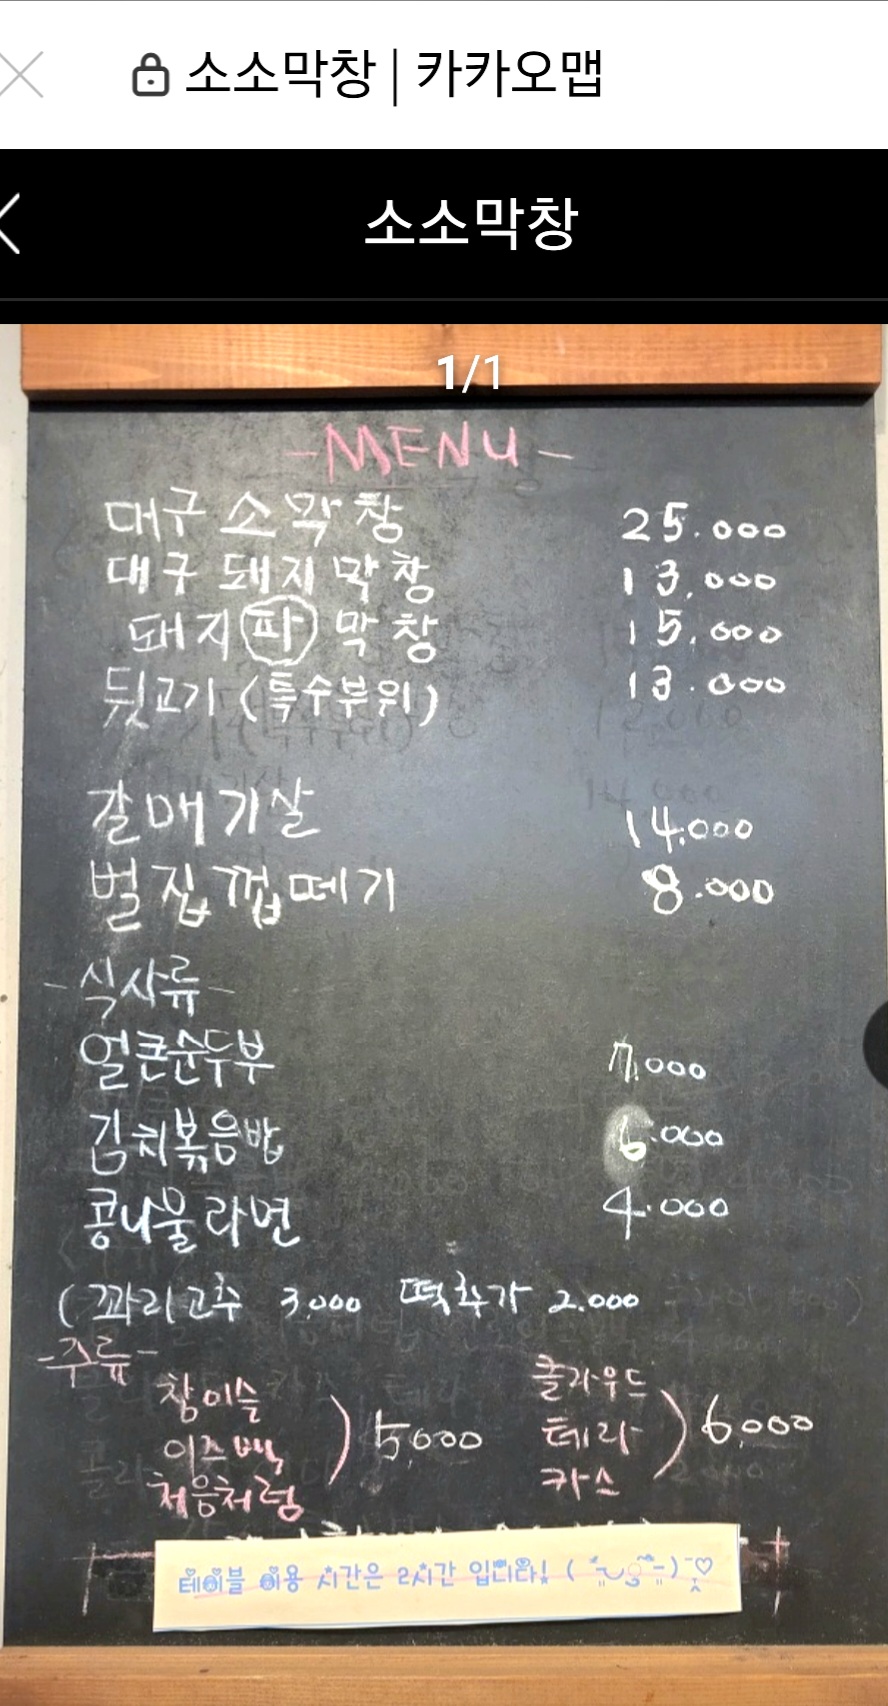 소소막창 | 카카오맵
소소막창
1/1
-MENU-
대구 소막창 25.000
대구 돼지 막창 13,000
돼지 파 막창 15,000
뒷고기 (특수부위) 13.000
갈매기살 14,000
벌집껍떼기 8.000
-식사류-
얼큰순두부 7.000
김치볶음밥 6.000
콩나물라면 4.000
(꽈리고추 3,000 떡추가 2.000 )
-주류-
참이슬 클라우드
이즈백 ) 5,000 테라 ) 6,000
처음처럼 카스
테이블 이용 시간은 2시간 입니다!